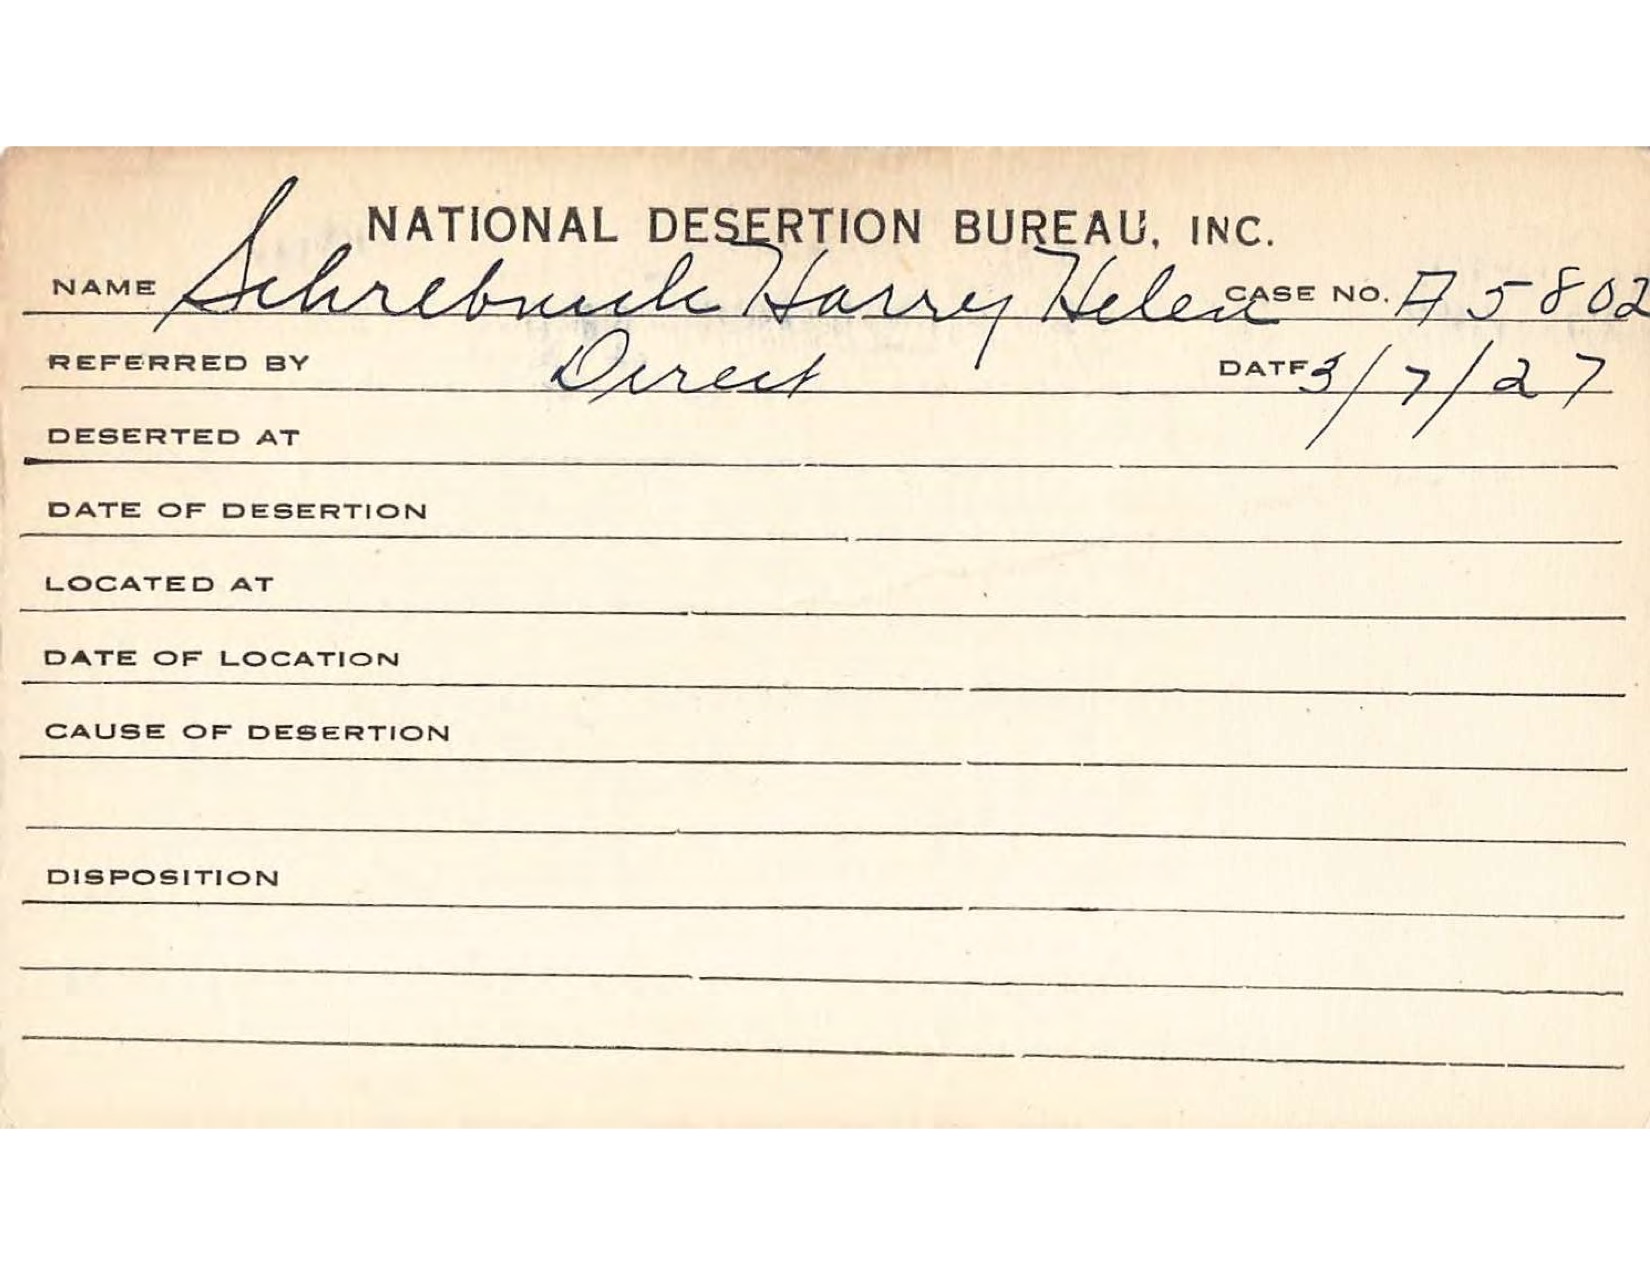 NATIONAL DESERTION BUREAU, INC.
NAME Schrebnick Harry Helen CASE NO. A5802
REFERRED BY Direct DATE 3/7/27
DESERTED AT
DATE OF DESERTION
LOCATED AT
DATE OF LOCATION
CAUSE OF DESERTION
DISPOSITION